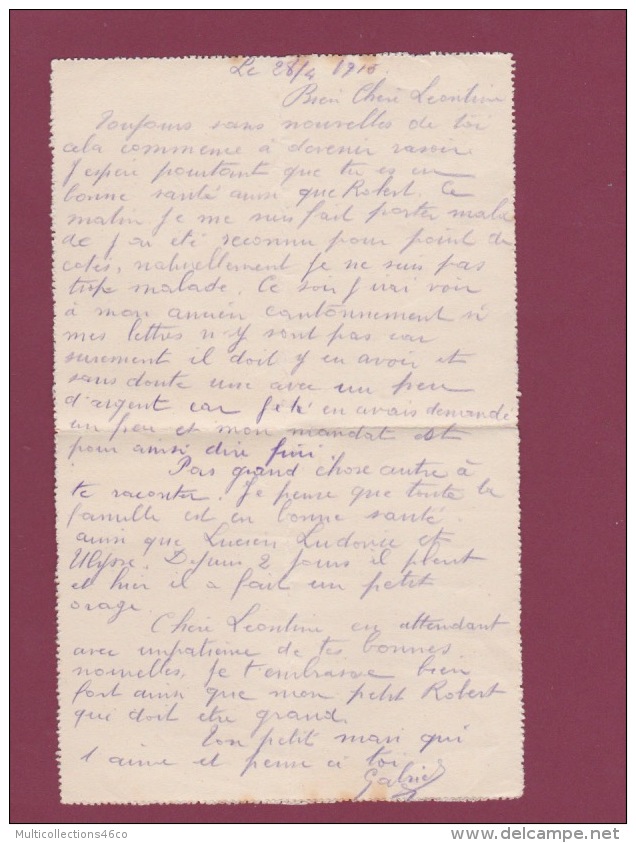 Le 28/4 1915.
Bien Cheri Leontine
Toujours sans nouvelles de toi
cela commence à devenir rasoir
J'espère pourtant que tu es en
bonne santé ainsi que Robert. Ce
matin je me suis fait porter mala
de j'ai été reconnu pour point de
cotés, naturellement je ne suis pas
trop malade. Ce soir j'irai voir
à mon ancien cantonnement si
mes lettres n'y sont pas car
surement il doit y en avoir et
sans doute une avec un peu
d'argent car je t'en avais demandé
un peu et mon mandat est
pour ainsi dire fini.
Pas grand chose autre à
te raconter. Je pense que toute la
famille est en bonne santé
ainsi que Lucien Ludovic et
Ulysse. Depuis 2 jours il pleut
et hier il a fait un petit
orage.
Cheri Leontine en attendant
avec impatience de tes bonnes
nouvelles, je t'embrasse bien
fort ainsi que mon petit Robert
qui doit etre grand.
Ton petit mari qui
t'aime et pense à toi
Gabriel
Multicollections46co
www.delcampe.net